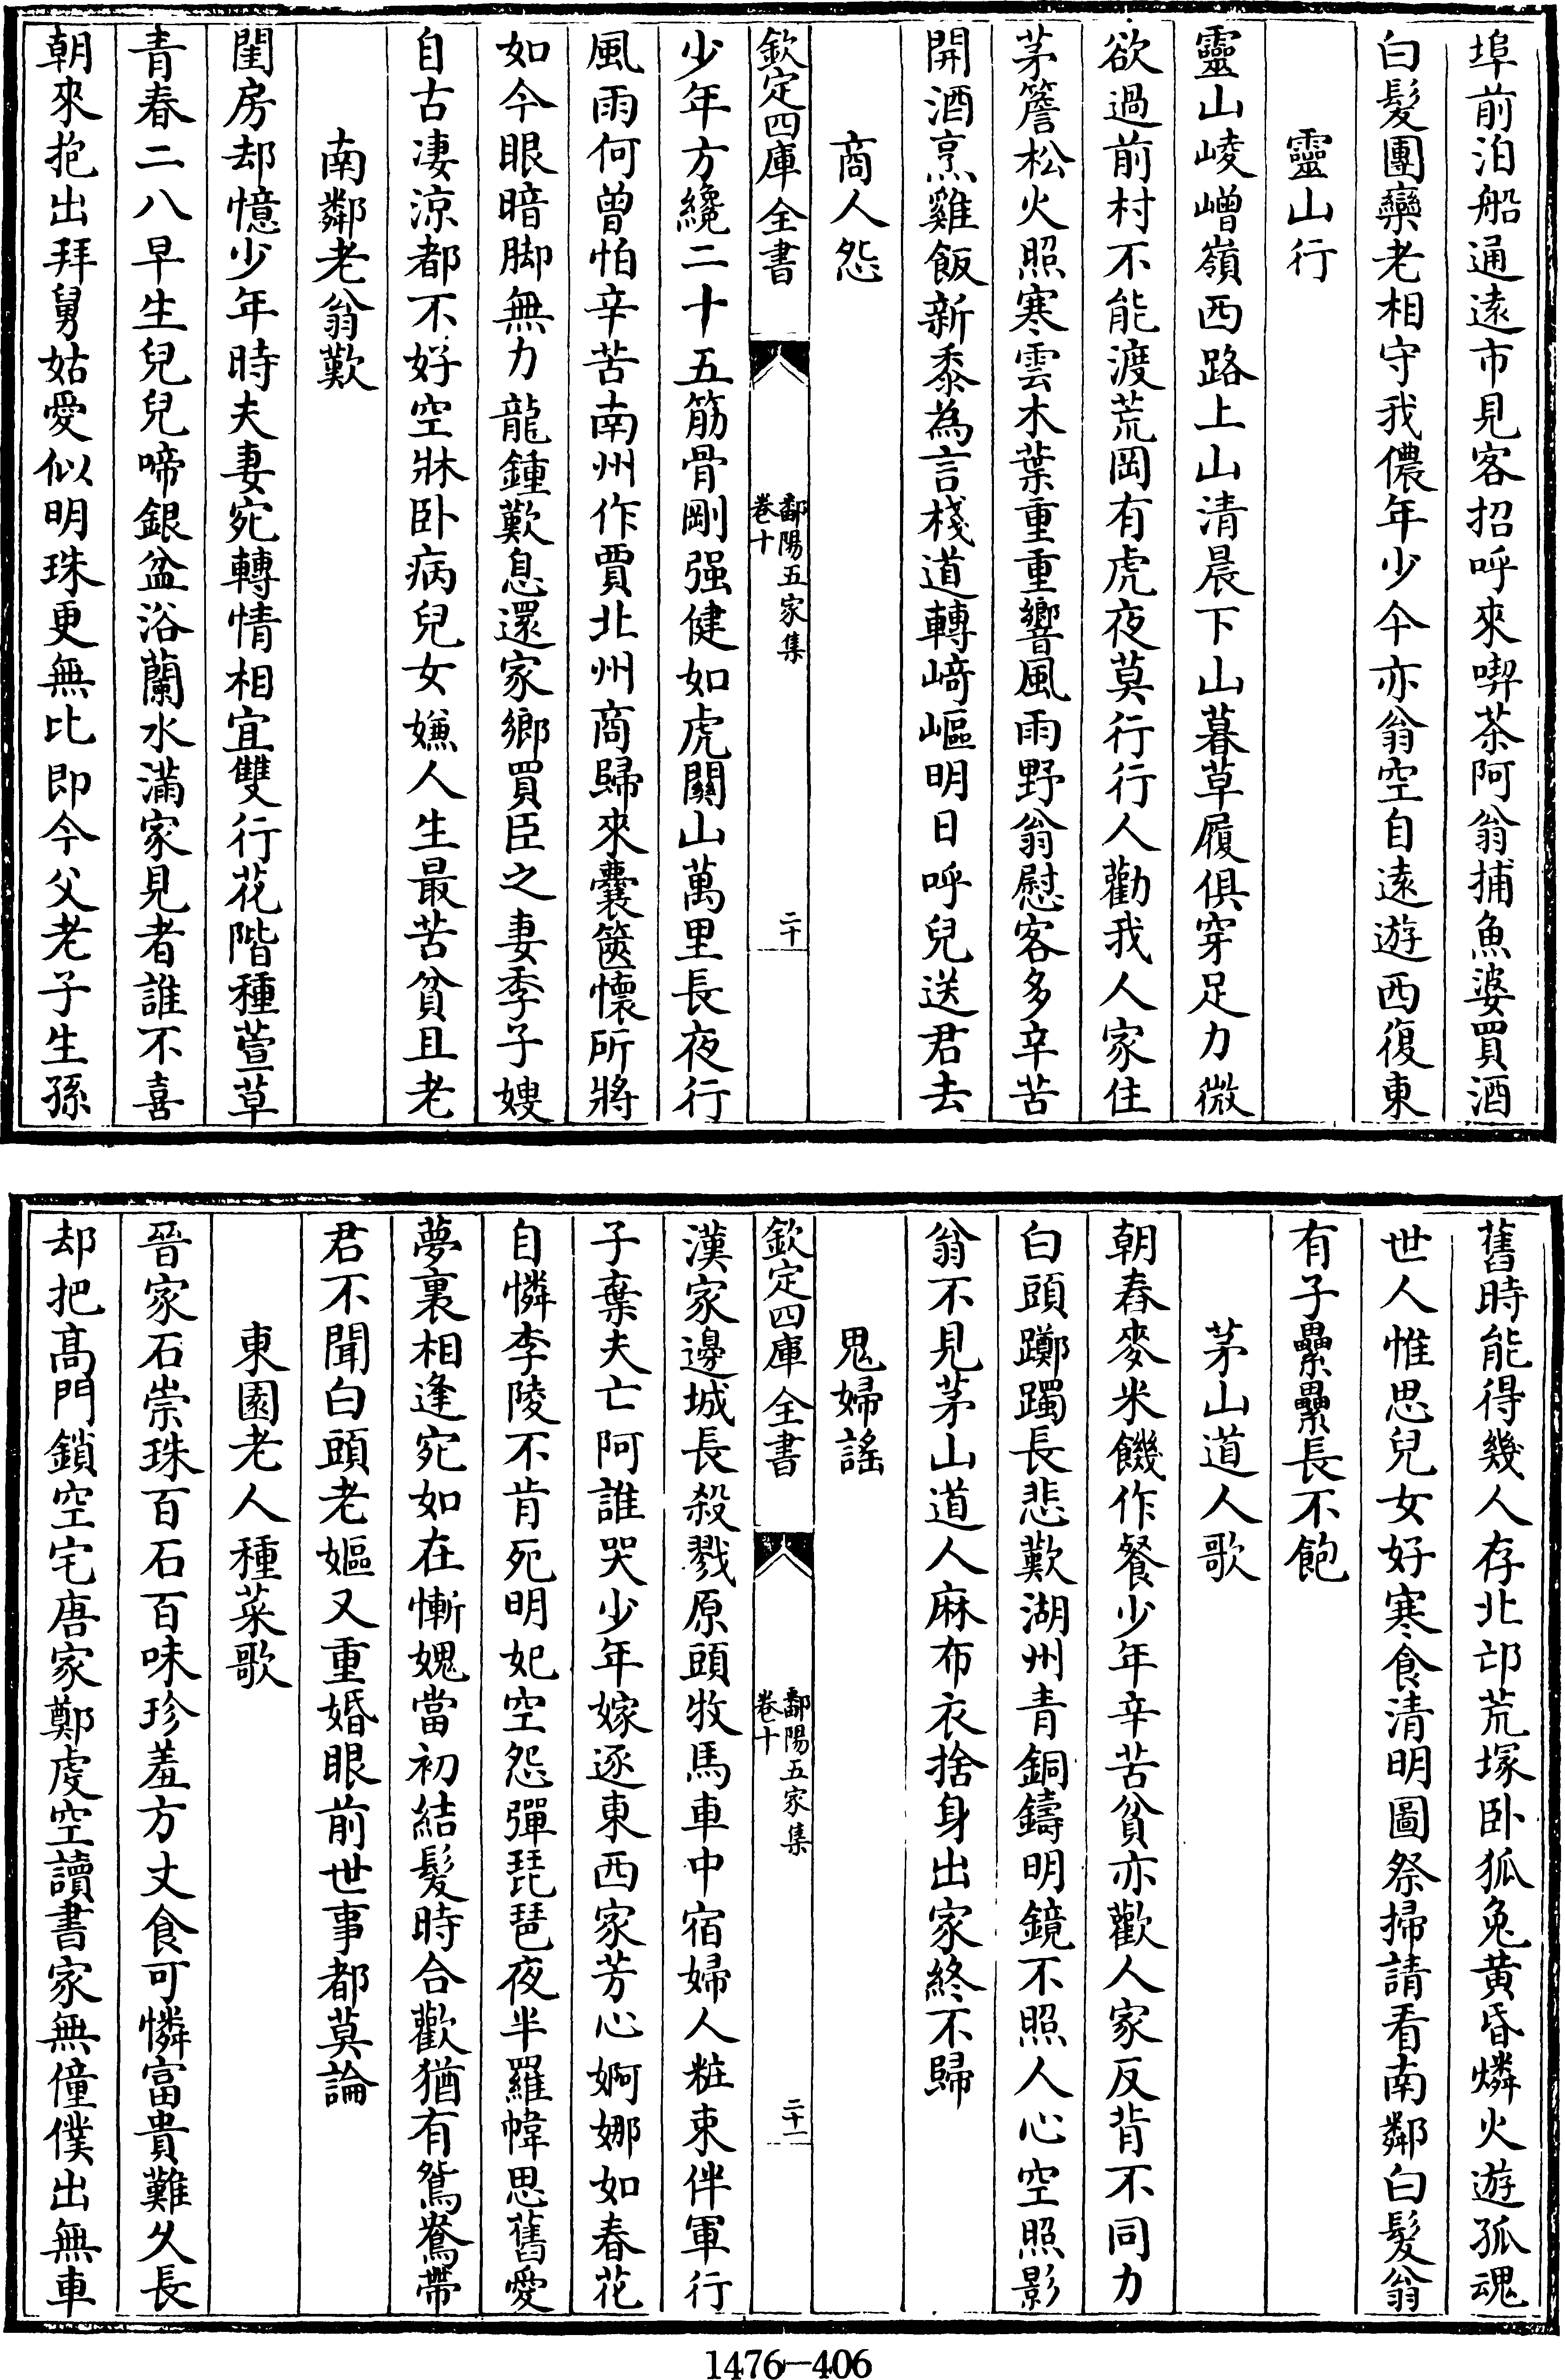 埠前泊船通遠市見客招呼來喫茶阿翁捕魚婆買酒
白髮團欒老相守我儂年少今亦翁空自遠遊西復東
靈山行
靈山崚嶒嶺西路上山清晨下山暮草履俱穿足力微
欲過前村不能渡荒岡有虎夜莫行行人勸我人家住
茅簷松火照寒雲木葉重重響風雨野翁慰客多辛苦
開酒烹雞飯新黍為言棧道轉﨑嶇明日呼兒送君去
商人怨
欽定四庫全書
鄱陽五家集
卷十
二十
少年方纔二十五筋骨剛强健如虎關山萬里長夜行
風雨何曾怕辛苦南州作賈北州商歸來囊篋懷所將
如今眼暗脚無力龍鍾歎息還家鄉買臣之妻季子嫂
自古凄涼都不好空牀卧病兒女嫌人生最苦貧且老
南鄰老翁歎
閨房却憶少年時夫妻宛轉情相宜雙行花階種萱草
青春二八早生兒兒啼銀盆浴蘭水滿家見者誰不喜
朝來抱出拜舅姑愛似明珠更無比即今父老子生孫
舊時能得幾人存北邙荒塚卧狐兔黄昏燐火遊孤魂
世人惟思兒女好寒食清明圖祭掃請看南鄰白髮翁
有子纍纍長不飽
茅山道人歌
朝舂麥米饑作餐少年辛苦貧亦歡人家反背不同力
白頭躑躅長悲歎湖州青銅鑄明鏡不照人心空照影
翁不見茅山道人麻布衣捨身出家終不歸
鬼婦謠
欽定四庫全書
鄱陽五家集
卷十
二十一
漢家邊城長殺戮原頭牧馬車中宿婦人粧束伴軍行
子棄夫亡阿誰哭少年嫁逐東西家芳心婀娜如春花
自憐李陵不肯死明妃空怨彈琵琶夜半羅幃思舊愛
夢裏相逢宛如在慚媿當初結髮時合歡猶有鴛鴦帶
君不聞白頭老嫗又重婚眼前世事都莫論
東園老人種菜歌
晉家石崇珠百石百味珍羞方丈食可憐富貴難久長
却把高門鎖空宅唐家鄭虔空讀書家無僮僕出無車
1476—406